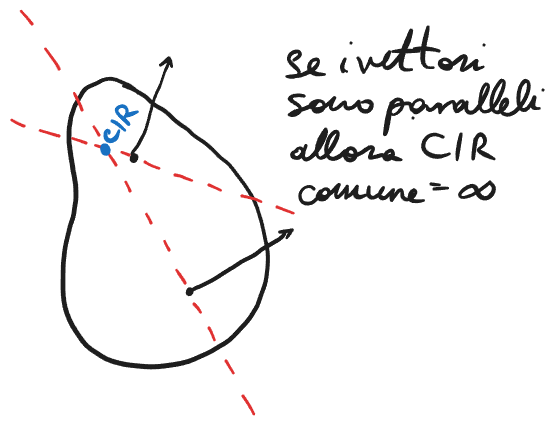 CIR
se i vettori
sono paralleli
allora CIR
comune = ∞